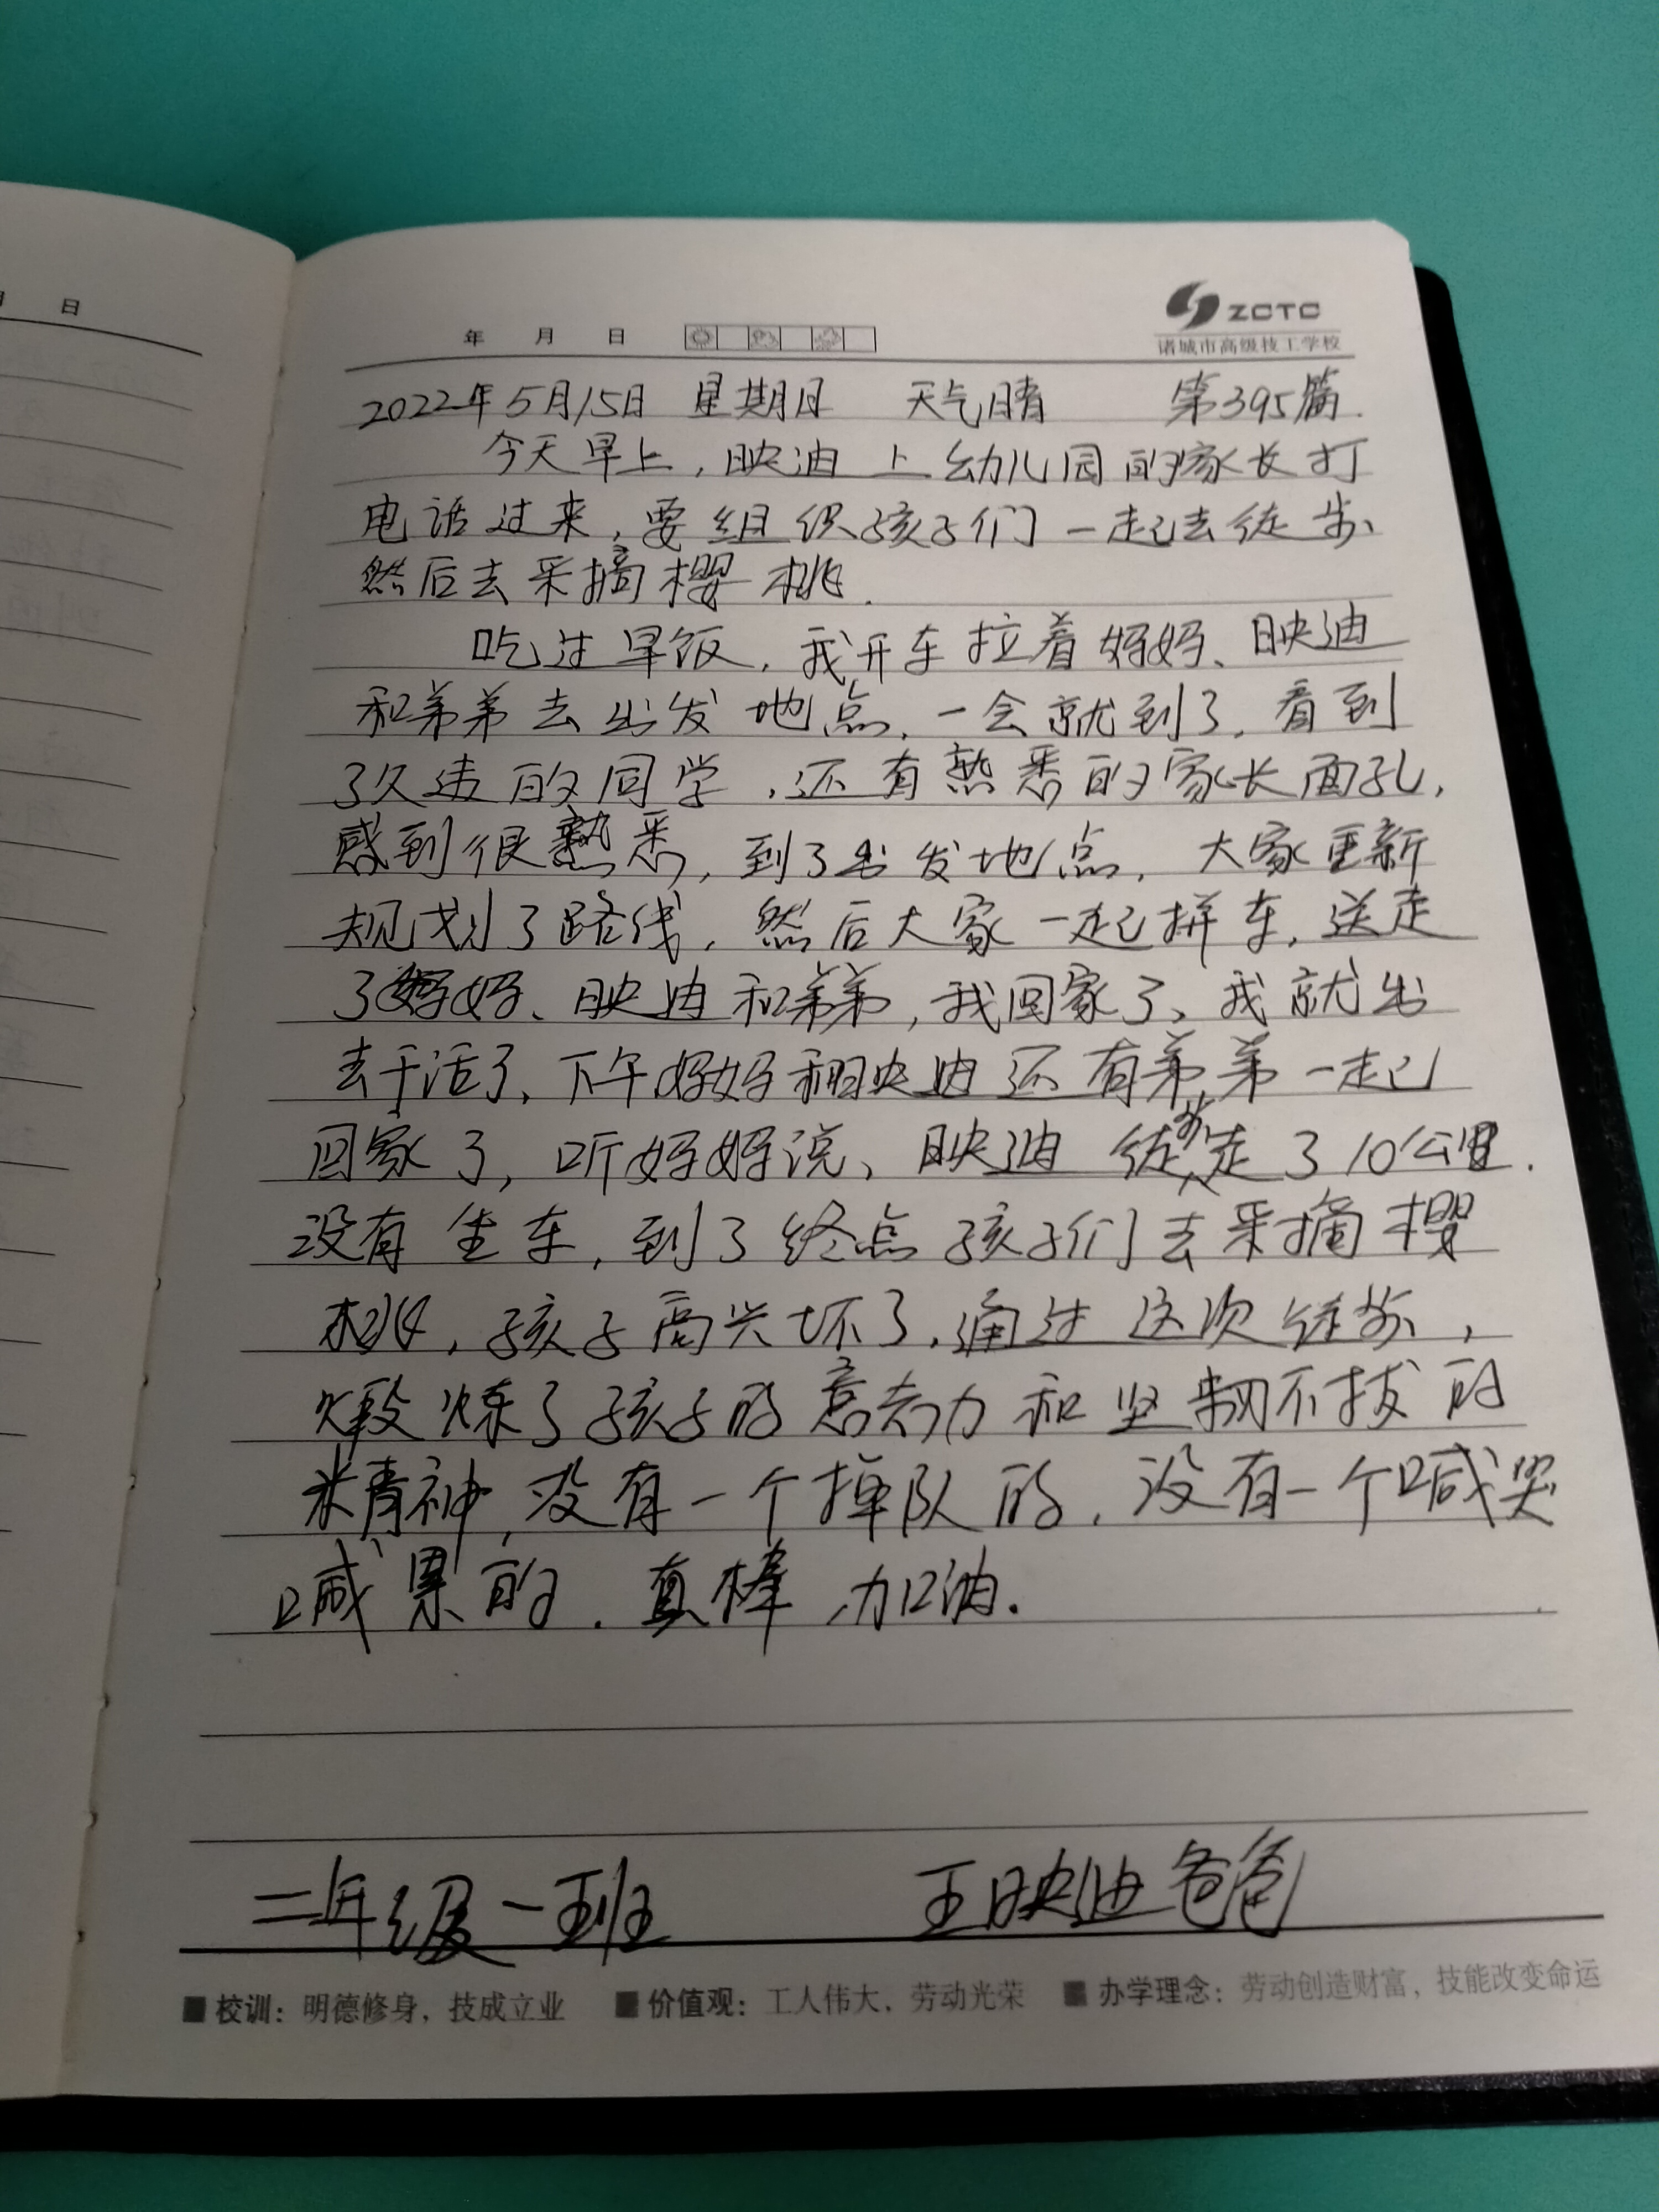 日
年 月 日
ZCTC
诸城市高级技工学校
2022年5月15日 星期日 天气晴 第395篇.
今天早上,映迪上幼儿园的家长打
电话过来,要组织孩子们一起去徒步、
然后去采摘樱桃.
吃过早饭,我开车拉着妈妈、映迪
和弟弟去出发地点,一会就到了,看到
了久违的同学,还有熟悉的家长面孔,
感到很熟悉,到了出发地点,大家重新
规划了路线,然后大家一起拼车,送走
了妈妈、映迪和弟弟,我回家了、我就出
去干活了,下午妈妈和映迪还有弟弟一起
回家了,听妈妈说、映迪徒步走了10公里.
没有坐车,到了终点孩子们去采摘樱
桃,孩子高兴坏了,通过这次徒步,
煅炼了孩子的意志力和坚韧不拔的
精神,没有一个掉队的,没有一个喊哭
喊累的.真棒,加油.
二年级一班 王映迪爸爸
■校训:明德修身,技成立业 ■价值观:工人伟大、劳动光荣 ■办学理念:劳动创造财富,技能改变命运